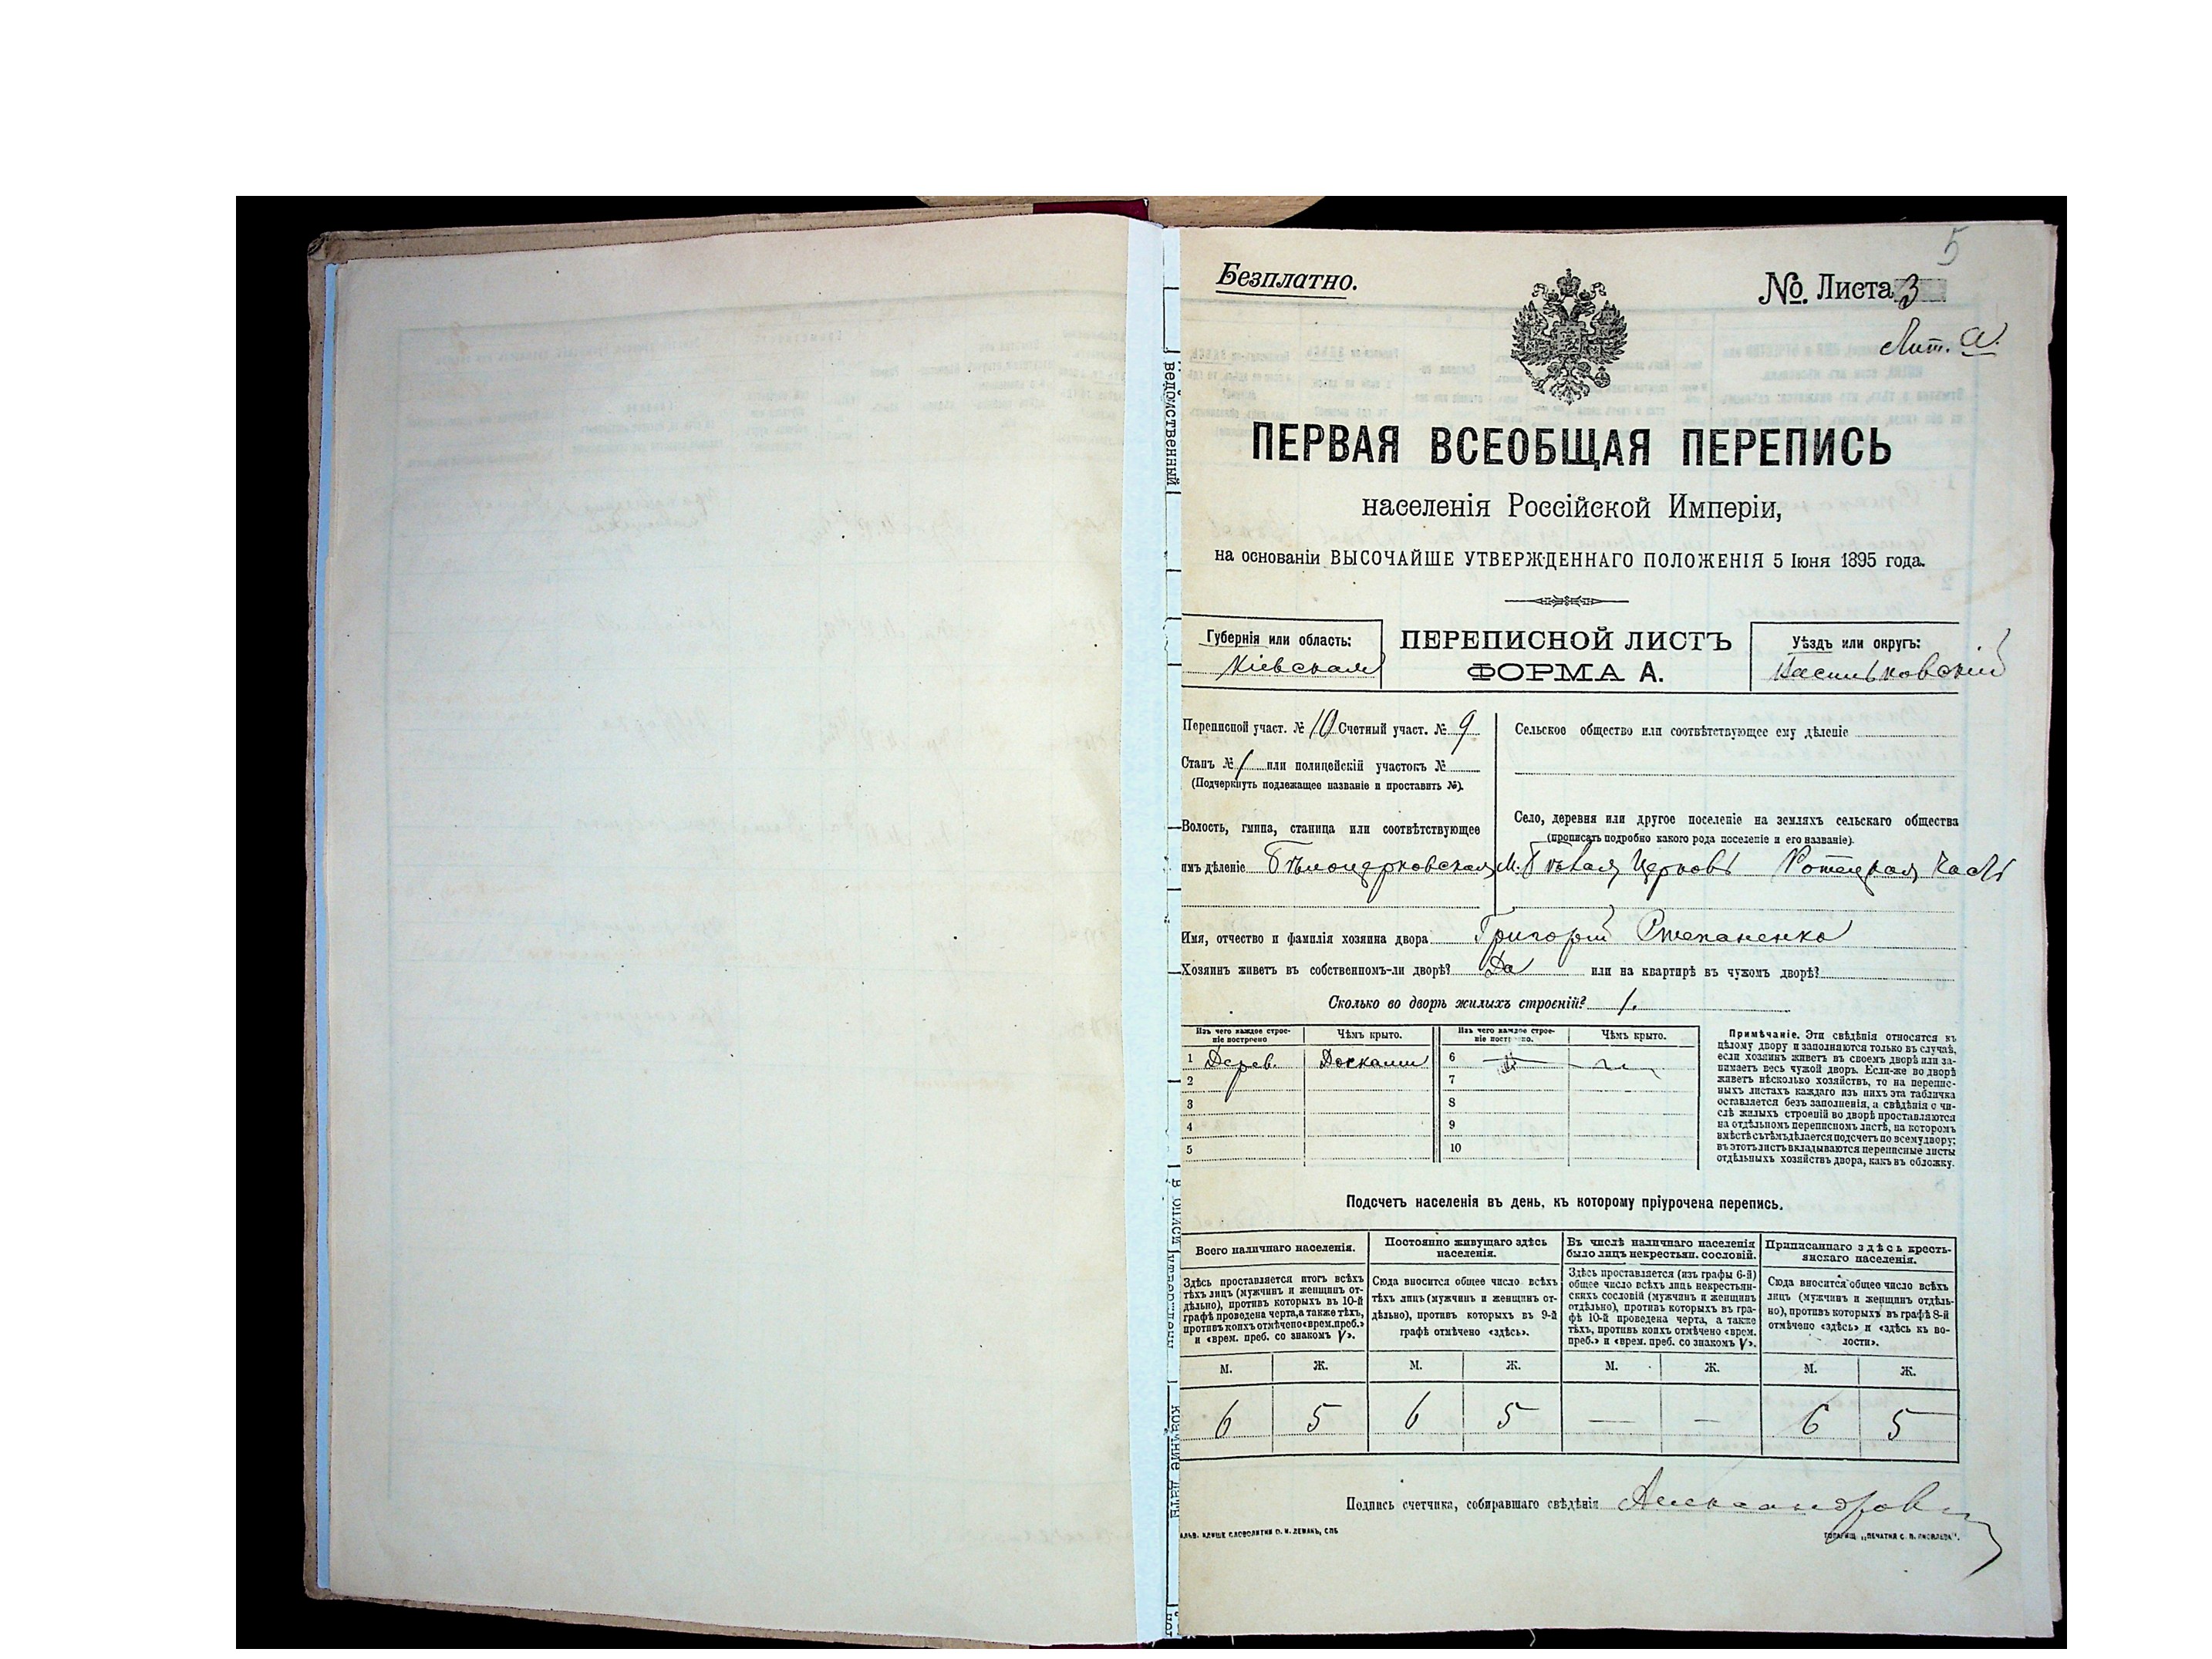 5
Безплатно.
№. Листа 3
Лит. А.
ПЕРВАЯ ВСЕОБЩАЯ ПЕРЕПИСЬ
населенія Россійской Имперіи,
на основаніи ВЫСОЧАЙШЕ УТВЕРЖДЕННАГО ПОЛОЖЕНІЯ 5 Іюня 1895 года.
Губернія или область:
Кіевская
ПЕРЕПИСНОЙ ЛИСТЪ
ФОРМА А.
Уѣздъ или округъ:
Васильковскій
Переписной участ. № 10 Счетный участ. № 9
Станъ № 1 или полицейскій участокъ №
(Подчеркнуть подлежащее названіе и проставить №).
Волость, гмина, станица или соотвѣтствующее
имъ дѣленіе Бѣлоцерковская
Сельское общество или соотвѣтствующее ему дѣленіе
Село, деревня или другое поселеніе на земляхъ сельскаго общества
(прописать подробно какого рода поселеніе и его названіе).
М. Бѣлая Церковь Часть
Имя, отчество и фамилія хозяина двора Григорій Степаненко
Хозяинъ живетъ въ собственномъ-ли дворѣ? Да или на квартирѣ въ чужомъ дворѣ?
Сколько во дворѣ жилыхъ строеній? 1.
Изъ чего каждое строе-
ніе построено
Чѣмъ крыто.
Изъ чего каждое строе-
ніе построено.
Чѣмъ крыто.
1 Дерев. Досками 6
2 7
3 8
4 9
5 10
Примѣчаніе. Эти свѣдѣнія относятся къ
цѣлому двору и заполняются только въ случаѣ,
если хозяинъ живетъ въ своемъ дворѣ или за-
нимаетъ весь чужой дворъ. Если-же во дворѣ
живетъ нѣсколько хозяйствъ, то на перепис-
ныхъ листахъ каждаго изъ нихъ эта табличка
оставляется безъ заполненія, а свѣдѣнія о чи-
слѣ жилыхъ строеній во дворѣ проставляются
на отдѣльномъ переписномъ листѣ, на которомъ
вмѣстѣ съ тѣмъ дѣлается подсчетъ по всему двору;
въ этотъ листъ вкладываются переписные листы
отдѣльныхъ хозяйствъ двора, какъ въ обложку.
Подсчетъ населенія въ день, къ которому пріурочена перепись.
Всего наличнаго населенія.
Здѣсь проставляется итогъ всѣхъ
тѣхъ лицъ (мужчинъ и женщинъ от-
дѣльно), противъ которыхъ въ 10-й
графѣ проведена черта, а также тѣхъ,
противъ коихъ отмѣчено «врем. преб.»
и «врем. преб. со знакомъ V».
Постоянно живущаго здѣсь
населенія.
Сюда вносится общее число всѣхъ
тѣхъ лицъ (мужчинъ и женщинъ от-
дѣльно), противъ которыхъ въ 9-й
графѣ отмѣчено «здѣсь».
Въ числѣ наличнаго населенія
было лицъ некрестьян. сословій.
Здѣсь проставляется (изъ графы 6-й)
общее число всѣхъ лицъ некрестьян-
скихъ сословій (мужчинъ и женщинъ
отдѣльно), противъ которыхъ въ гра-
фѣ 10-й проведена черта, а также
тѣхъ, противъ коихъ отмѣчено «врем.
преб.» и «врем. преб. со знакомъ V».
Приписаннаго здѣсь кресть-
янскаго населенія.
Сюда вносится общее число всѣхъ
лицъ (мужчинъ и женщинъ отдѣль-
но), противъ которыхъ въ графѣ 8-й
отмѣчено «здѣсь» и «здѣсь къ во-
лости».
М. Ж. М. Ж. М. Ж. М. Ж.
6 5 6 5 — — 6 5
Подпись счетчика, собиравшаго свѣдѣнія Александров